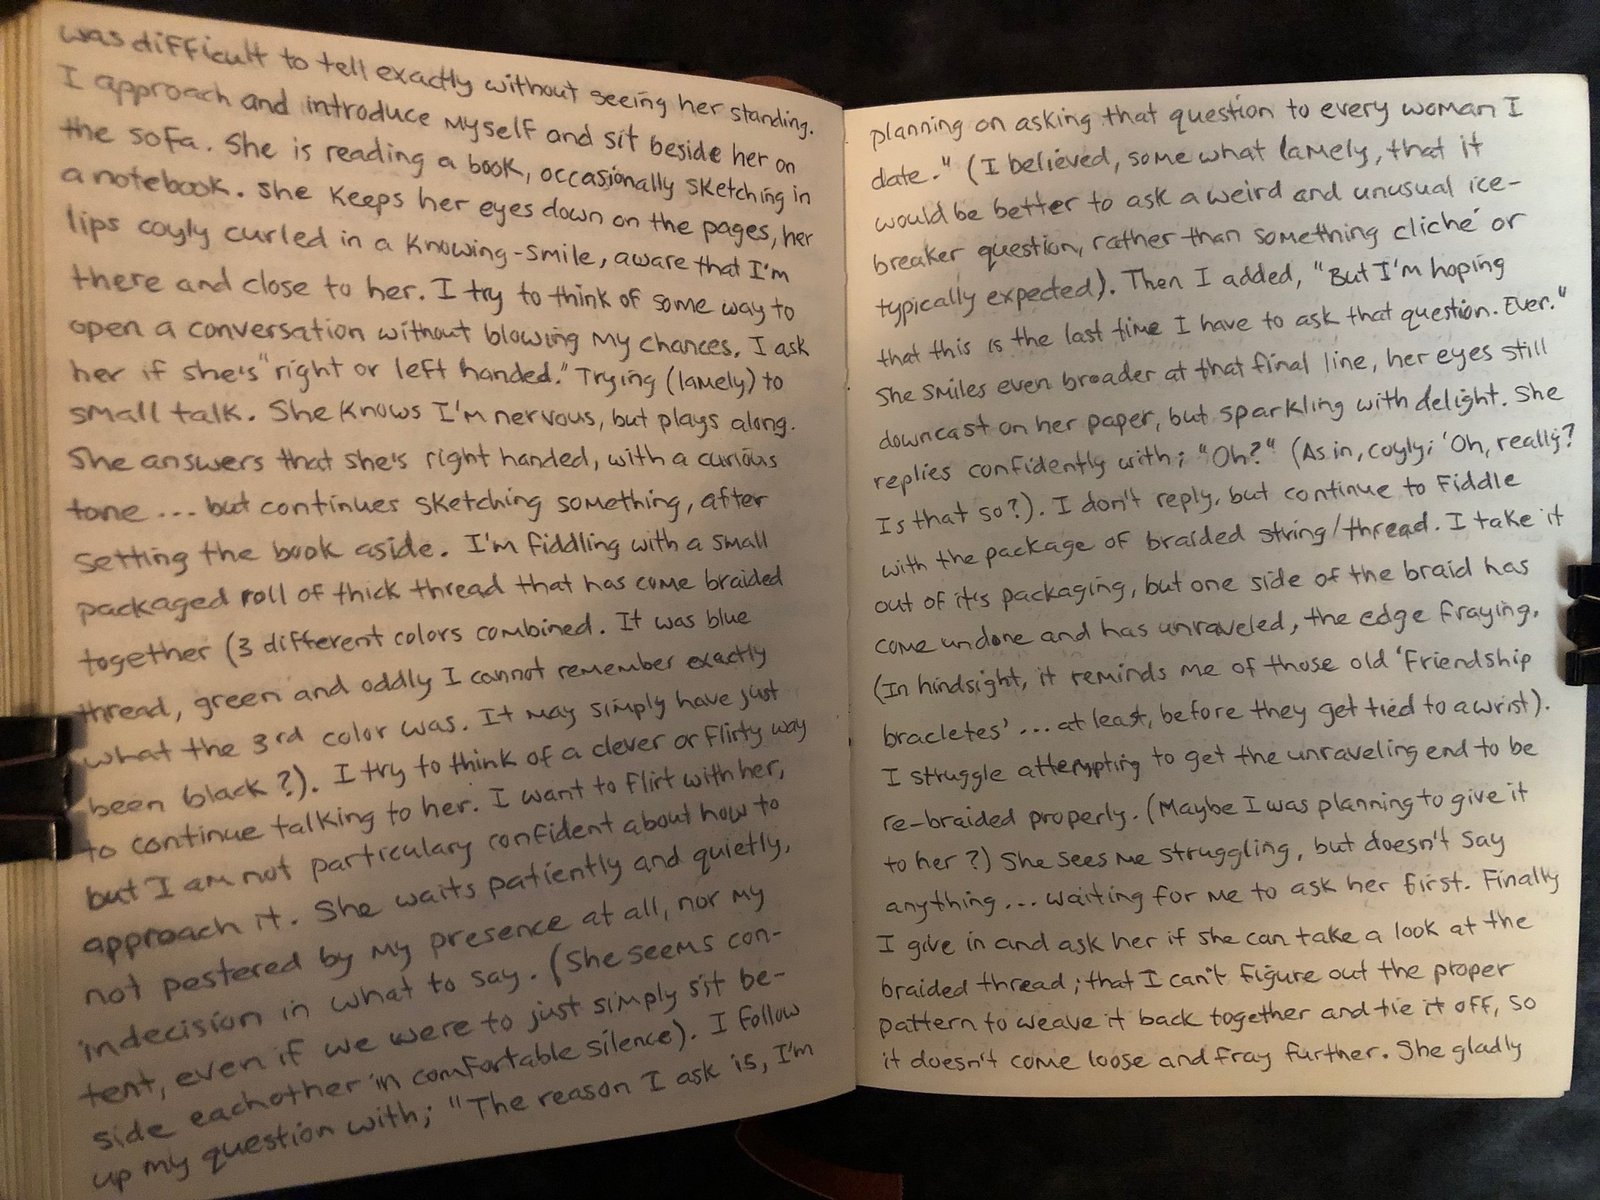 was difficult to tell exactly without seeing her standing.
I approach and introduce myself and sit beside her on
the sofa. She is reading a book, occasionally sketching in
a notebook. She keeps her eyes down on the pages, her
lips coyly curled in a knowing-smile, aware that I'm
there and close to her. I try to think of some way to
open a conversation without blowing my chances. I ask
her if she's "right or left handed." Trying (lamely) to
small talk. She knows I'm nervous, but plays along.
She answers that she's right handed, with a curious
tone ... but continues sketching something, after
setting the book aside. I'm fiddling with a small
packaged roll of thick thread that has come braided
together (3 different colors combined. It was blue
thread, green and oddly I cannot remember exactly
what the 3rd color was. It may simply have just
been black?). I try to think of a clever or flirty way
to continue talking to her. I want to flirt with her,
but I am not particulary confident about how to
approach it. She waits patiently and quietly,
not pestered by my presence at all, nor my
indecision in what to say. (She seems con-
tent, even if we were to just simply sit be-
side eachother in comfortable silence). I follow
up my question with; "The reason I ask is, I'm
planning on asking that question to every woman I
date." (I believed, some what lamely, that it
would be better to ask a weird and unusual ice-
breaker question, rather than something cliché or
typically expected). Then I added, "But I'm hoping
that this is the last time I have to ask that question. Ever."
She smiles even broader at that final line, her eyes still
downcast on her paper, but sparkling with delight. She
replies confidently with; "Oh?" (As in, coyly; 'Oh, really?
Is that so?). I don't reply, but continue to fiddle
with the package of braided string/thread. I take it
out of it's packaging, but one side of the braid has
come undone and has unraveled, the edge fraying.
(In hindsight, it reminds me of those old 'Friendship
bracletes' ... at least, before they get tied to a wrist).
I struggle attempting to get the unraveling end to be
re-braided properly. (Maybe I was planning to give it
to her?) She sees me struggling, but doesn't say
anything ... waiting for me to ask her first. Finally
I give in and ask her if she can take a look at the
braided thread; that I can't figure out the proper
pattern to weave it back together and tie it off, so
it doesn't come loose and fray further. She gladly